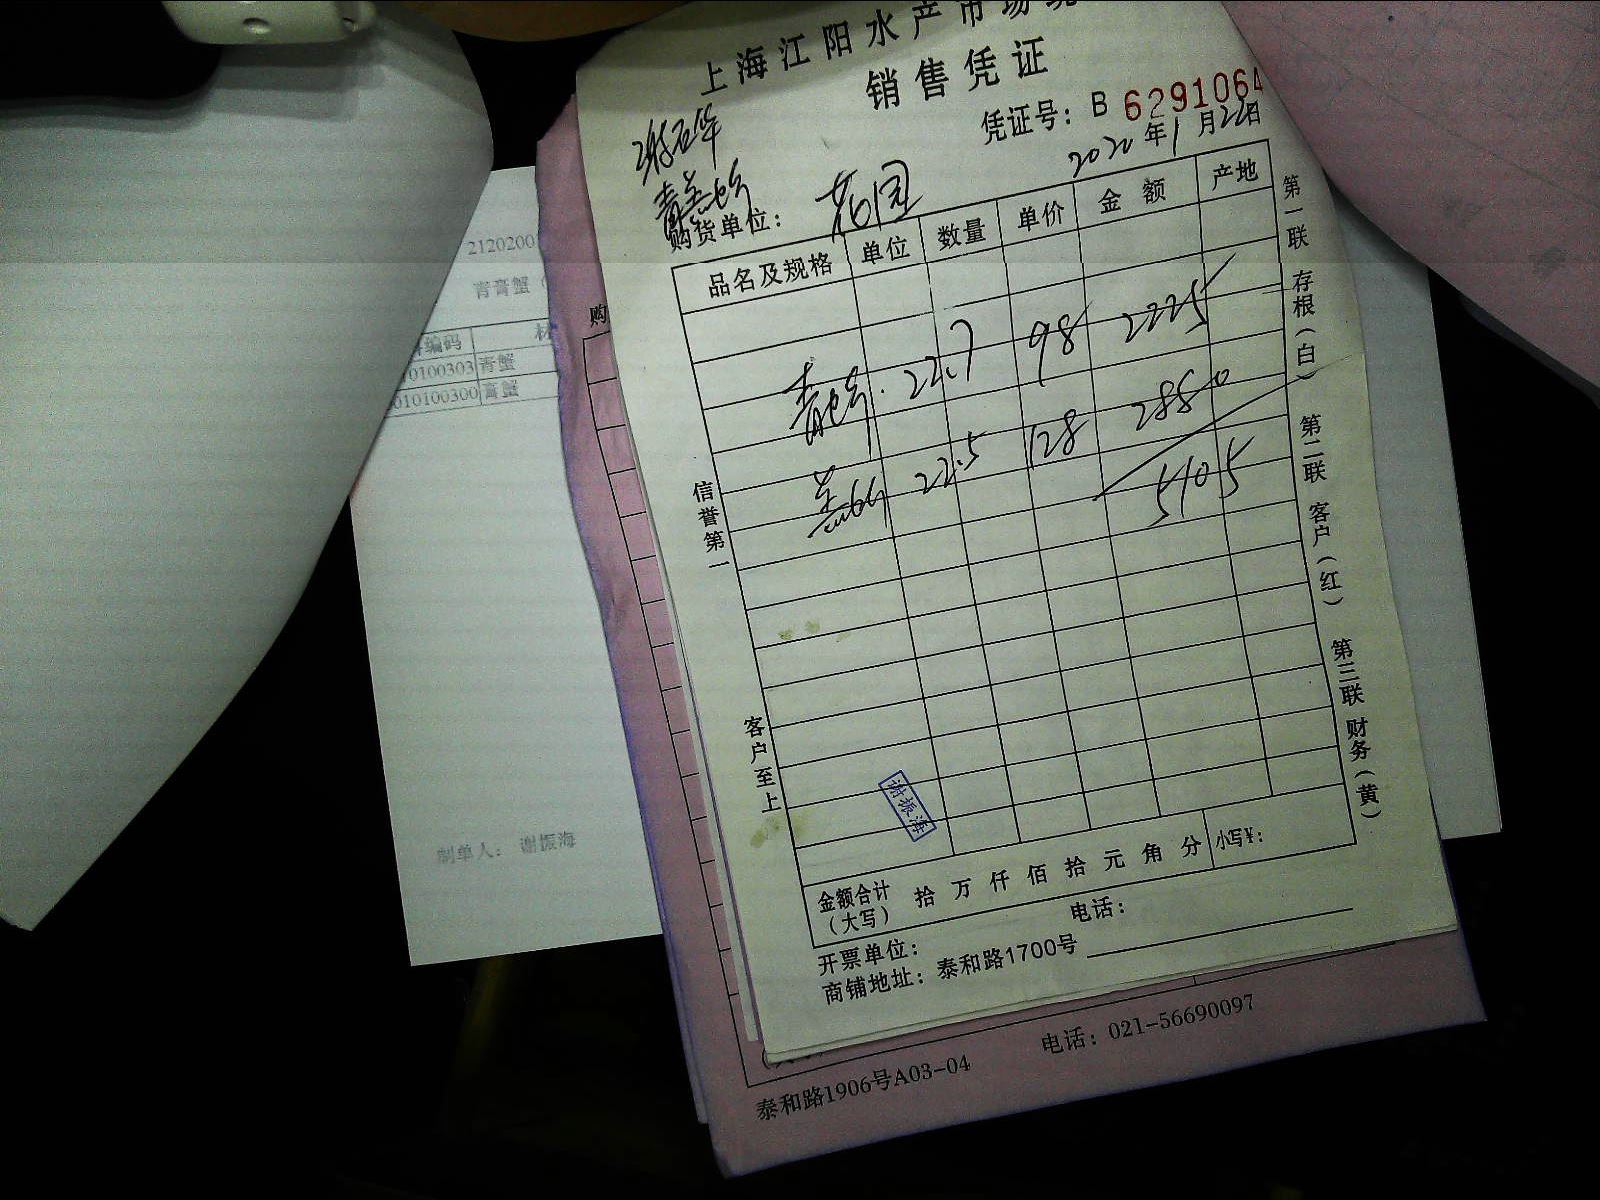 上海江阳水产市场
销售凭证
凭证号：B 6291064
2020年1月22日
购货单位：花园
品名及规格 单位 数量 单价 金额 产地
22.7 98 2225
22.5 128 2880
5105
信誉第一
客户至上
第一联 存根（白） 第二联 客户（红） 第三联 财务（黄）
谢振海
金额合计（大写） 拾 万 仟 佰 拾 元 角 分 小写¥：
开票单位： 电话：
商铺地址：泰和路1700号
泰和路1906号A03-04 电话：021-56690097
购
2120200
青膏蟹（
编码 材
0100303 青蟹
010100300 膏蟹
制单人： 谢振海